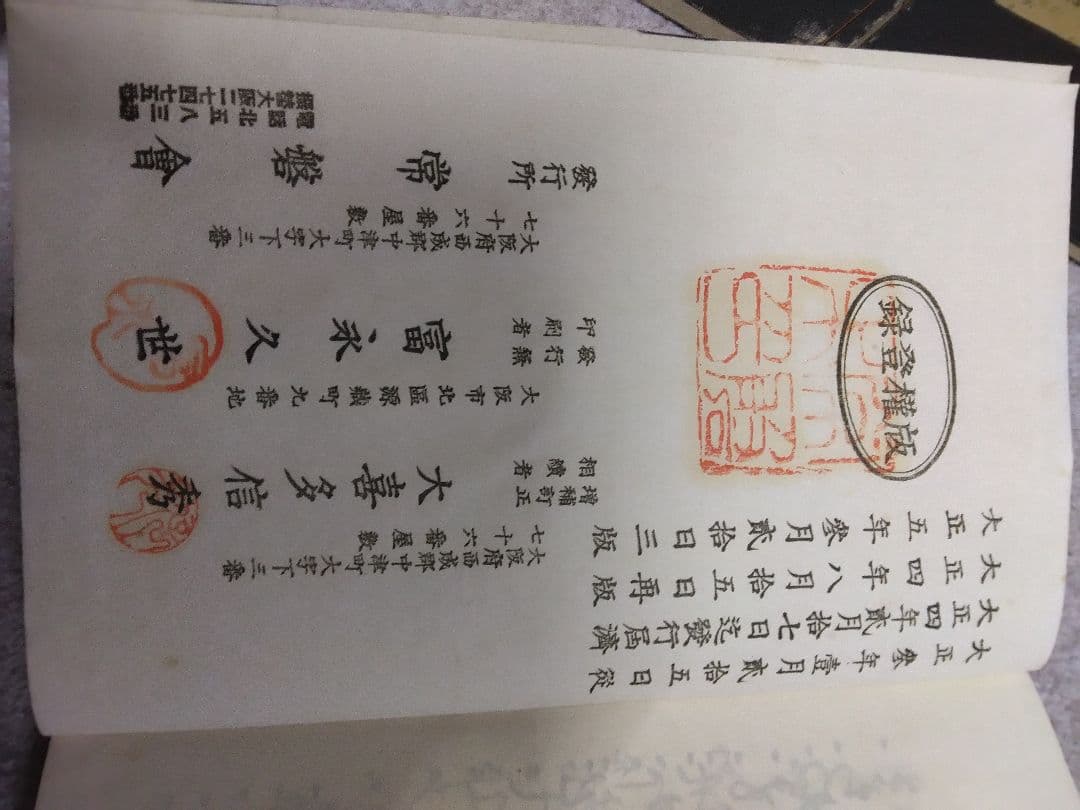 版權登録
大正參年壹月貳拾五日從
大正四年貳月拾七日迄發行届濟
大正四年八月拾五日再版
大正五年參月貳拾日三版
大阪府西成郡中津町大字下三番
七十六番屋敷
增補訂正
相續者
大喜多信秀
大阪市北區源藏町九番地
發行兼
印刷者
富永久世
大阪府西成郡中津町大字下三番
七十六番屋敷
發行所
常磐會
電話北五八三番
振替大阪